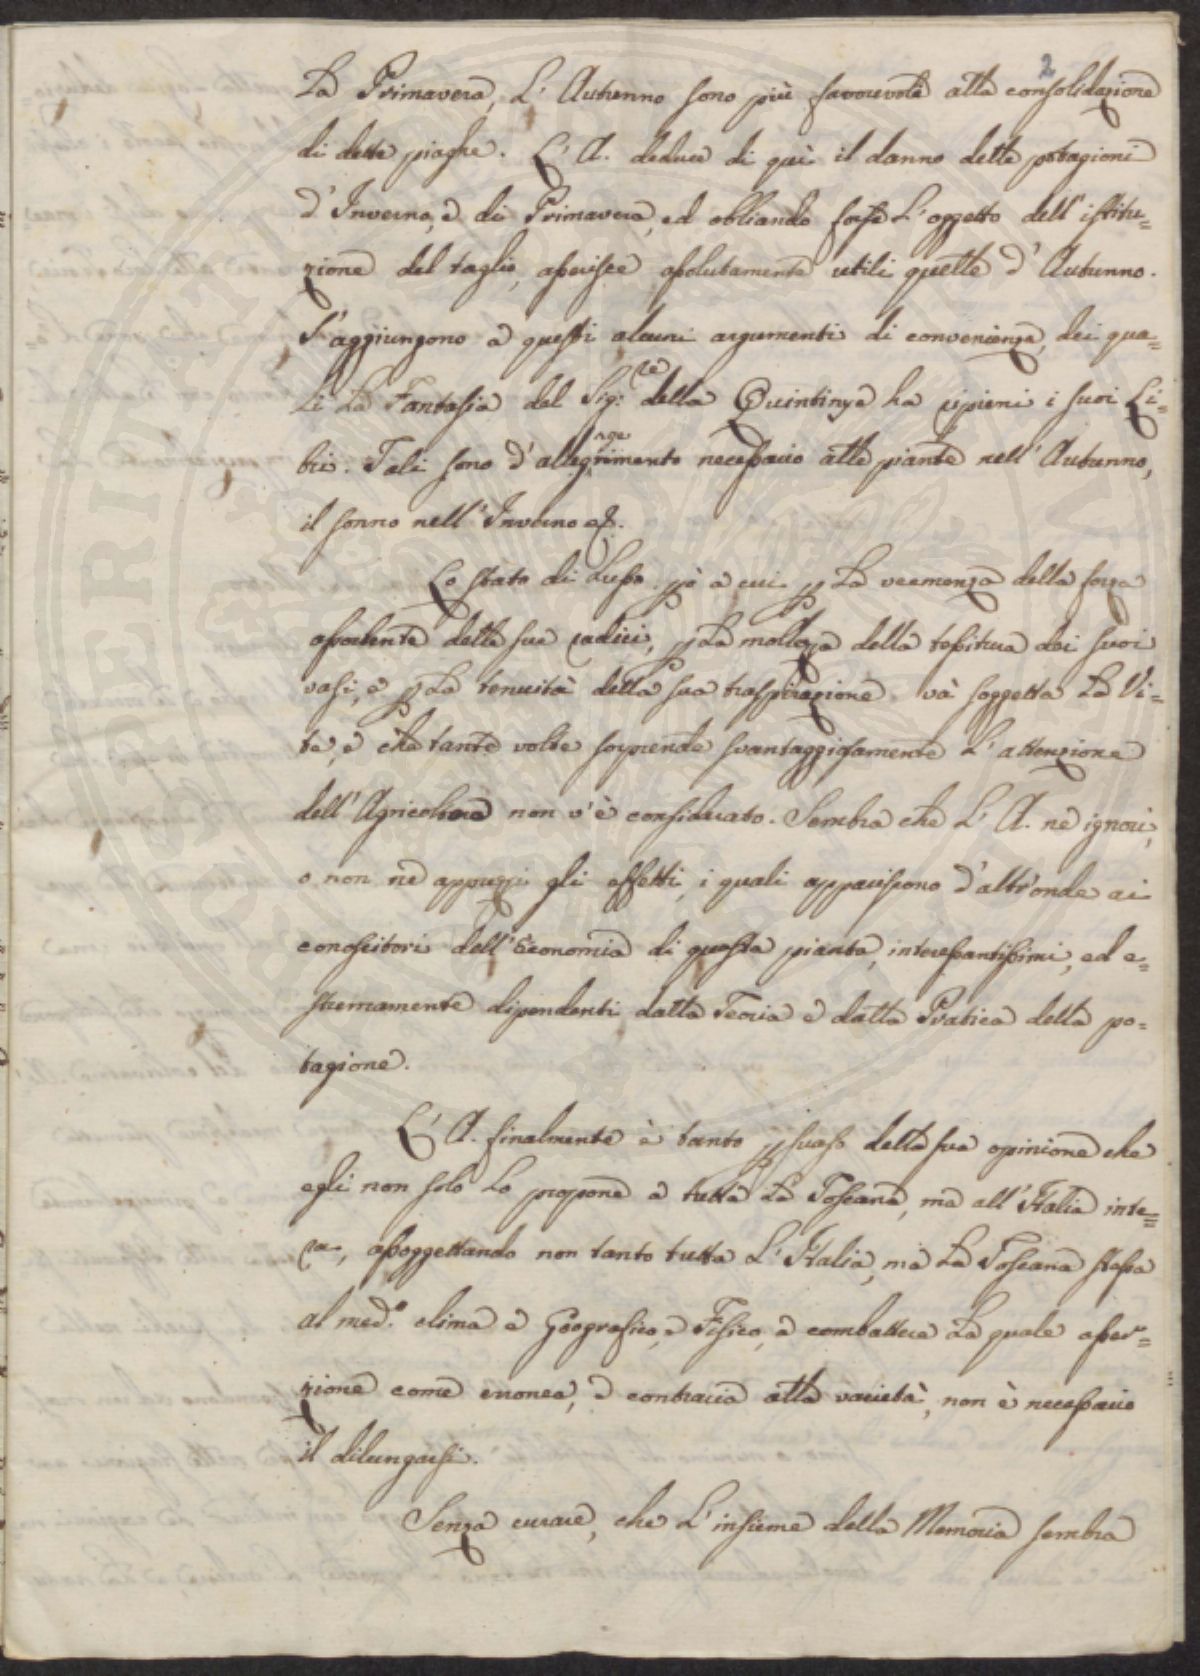 2
La Primavera, L'Autunno sono più favorevole alla consolidazione
di dette piaghe. L'A. deduce di quì il danno delle potagioni
d'Inverno, e di Primavera, ed obliando forse L'oggetto dell'istitu=
zione del taglio, aserisce assolutamente utili quelle d'Autunno.
S'aggiungono a questi alcuni argumenti di convenienza, dei qua=
li La Fantasia del Sig:re della Quintinye ha ripieni i suoi Li=
bri. Tali sono d'allegrimento necessario alle piante nell'Autunno,
il sonno nell'Inverno
Lo stato di Lusso, però a cui p La veemenza della forza
assorbente delle sue radici, p La mollezza della tessitura dei suoi
vasi, e p La tenuità della sua traspirazione và soggetta La Vi=
te, e che tante volte sorprende svantaggiosamente L'attenzione
dell'Agricoltore non v'è considerato. Sembra che L'A. ne ignori,
o non ne apprezzi gli effetti, i quali appariscono d'altronde ai
conoscitori dell'Economia di questa pianta, interessantissimi, ed e=
stremamente dipendenti dalla Teoria e dalla Pratica della po=
tagione.
L'A. finalmente è tanto psuaso della sua opinione che
egli non solo Lo propone a tutta La Toscana, ma all'Italia inte=
ra, assoggettando non tanto tutta L'Italia, ma La Toscana stessa
al med.o clima e Geografico, e Fisico, a combattere La quale asser=
zione come erronea, e contraria alla varietà, non è necessario
il dilungarsi.
Senza curare, che L'insieme della Memoria sembra